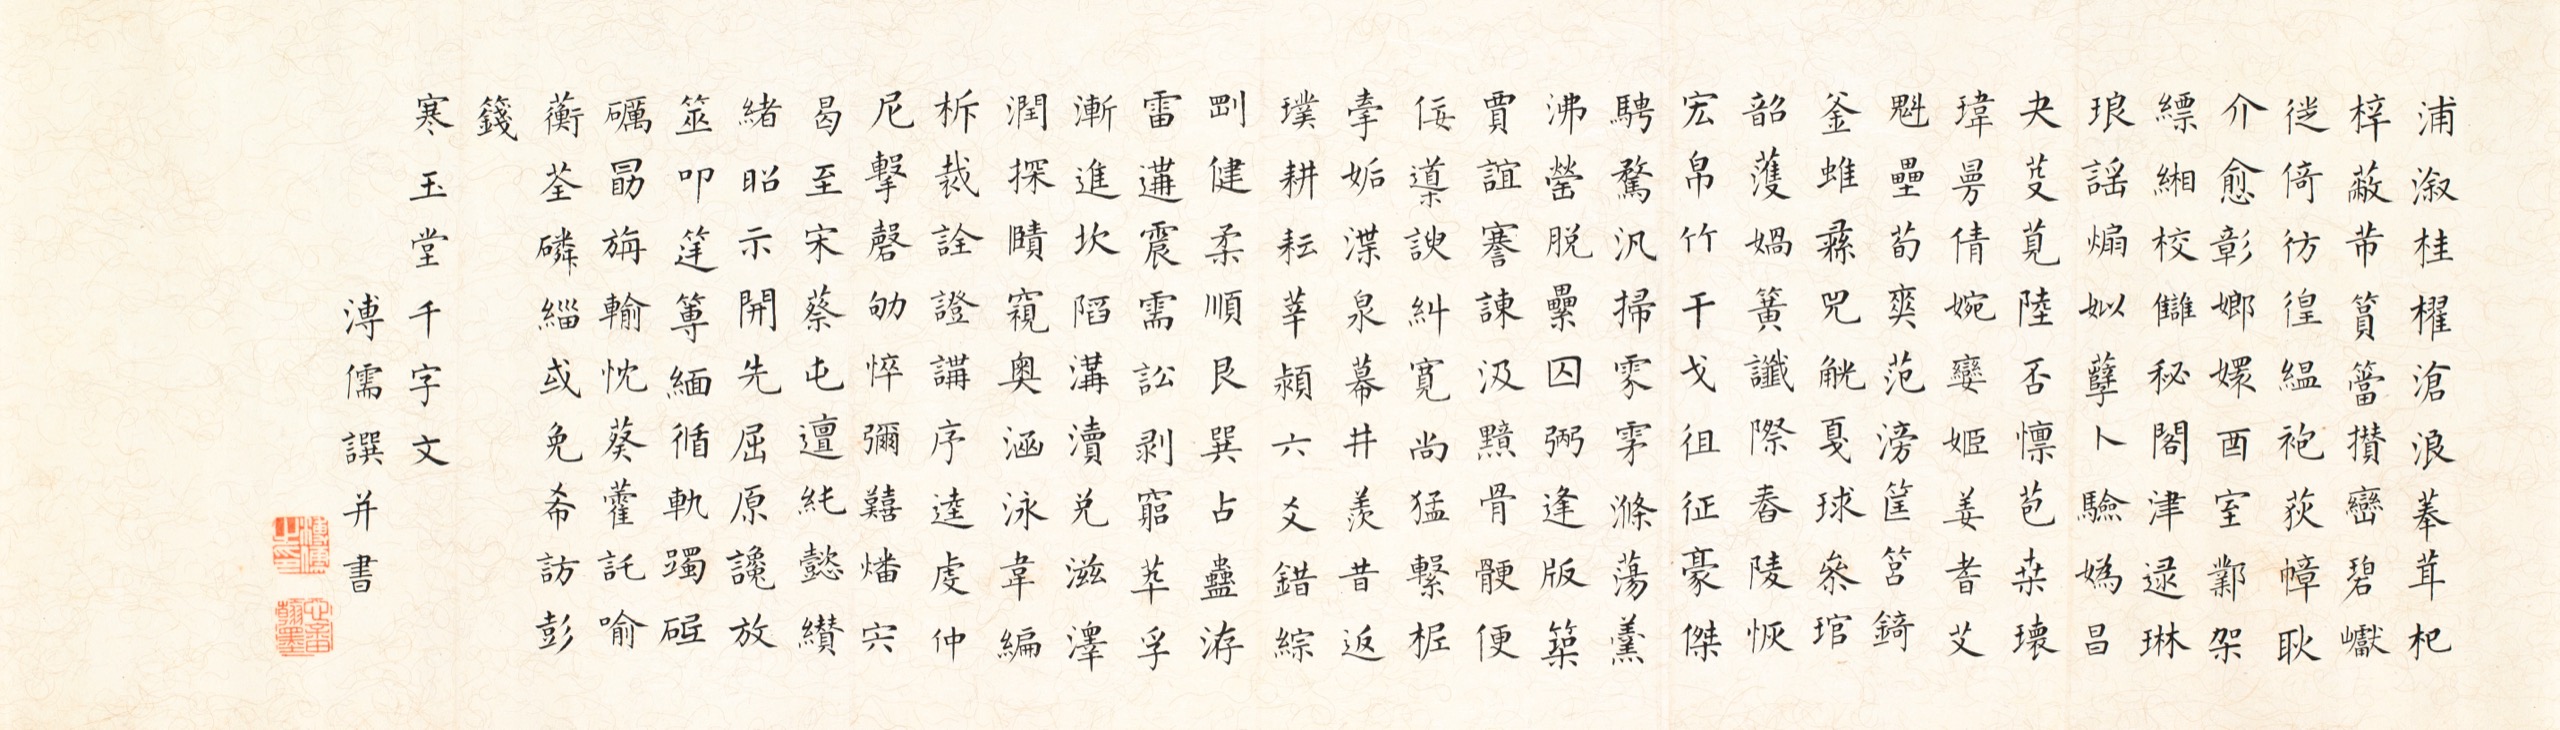 浦溆桂櫂滄浪菶茸杞
梓蔽芾篔簹攢巒碧巘
從倚彷徨縕袍荻幛耿
介愈彰嫏嬛酉室酇架
縹緗校讎秘閣津逯琳
琅謡煽姒孽卜驗嬀昌
夬芟莧陸否懍苞桒瓌
瑋曼倩婉孌姬姜耆艾
魁壘荀奭范滂筐筥錡
釜蜼彞兕觥戛球叅琯
韶濩媧簧讖際舂陵恢
宏帛竹干戈徂征豪傑
騁騖汎掃雺雺滌蕩羹
沸螢脱纍囚弼逢版築
賈誼謇諫汲黯骨骾便
佞導諛糾寬尚猛繫柅
牽姤渫泉幕井羨昔返
璞耕耘莘潁六爻錯綜
剛健柔順艮巽占蠱洊
雷遘震需訟剥窮苹孚
漸進坎陷溝瀆兑滋澤
潤探賾窺奥涵泳韋編
柝裁詮證講序逵虔仲
尼擊磬劬悴彌囏燔宍
曷至宋蔡屯邅純懿纘
緒昭示開先屈原讒放
筮叩筳篿緬循軌躅硜
礪勗旃輸忱葵藿託喻
蘅荃磷緇或免希訪彭
籛
寒玉堂千字文
溥儒譔并書